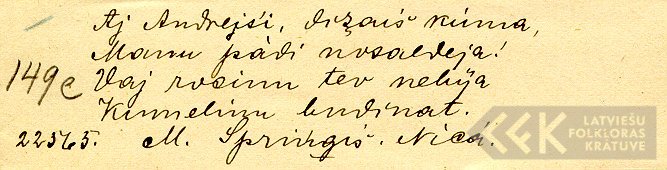 Aj Andrejši, dižais kūma,
Manu pādi nosaldeja!
149c Vaj rociņu tev nebija
Kumeliņu budinat.
22565. M. Spriņģis. Nīcā.
LATVIEŠU
FOLKLORAS
KRĀTUVE